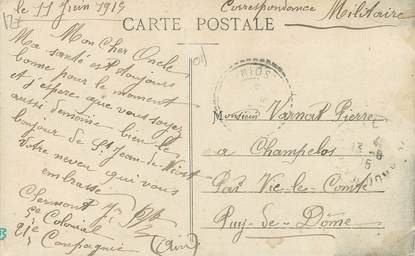 le 11 Juin 1915
Correspondance
Militaire
CARTE POSTALE
Mon Cher Oncle
Ma santé est toujours
bonne pour le moment
et j'espère que vous soyez
aussi de même bien le
bonjour de St Jean-de-Niost
Votre neveu qui vous
embrasse
Clermont
5e Colonial
21e Compagnie
(Ain)
NIOST
Monsieur Varnat Pierre
a Champelos
Par Vic-le-Comte
Puy-de-Dôme